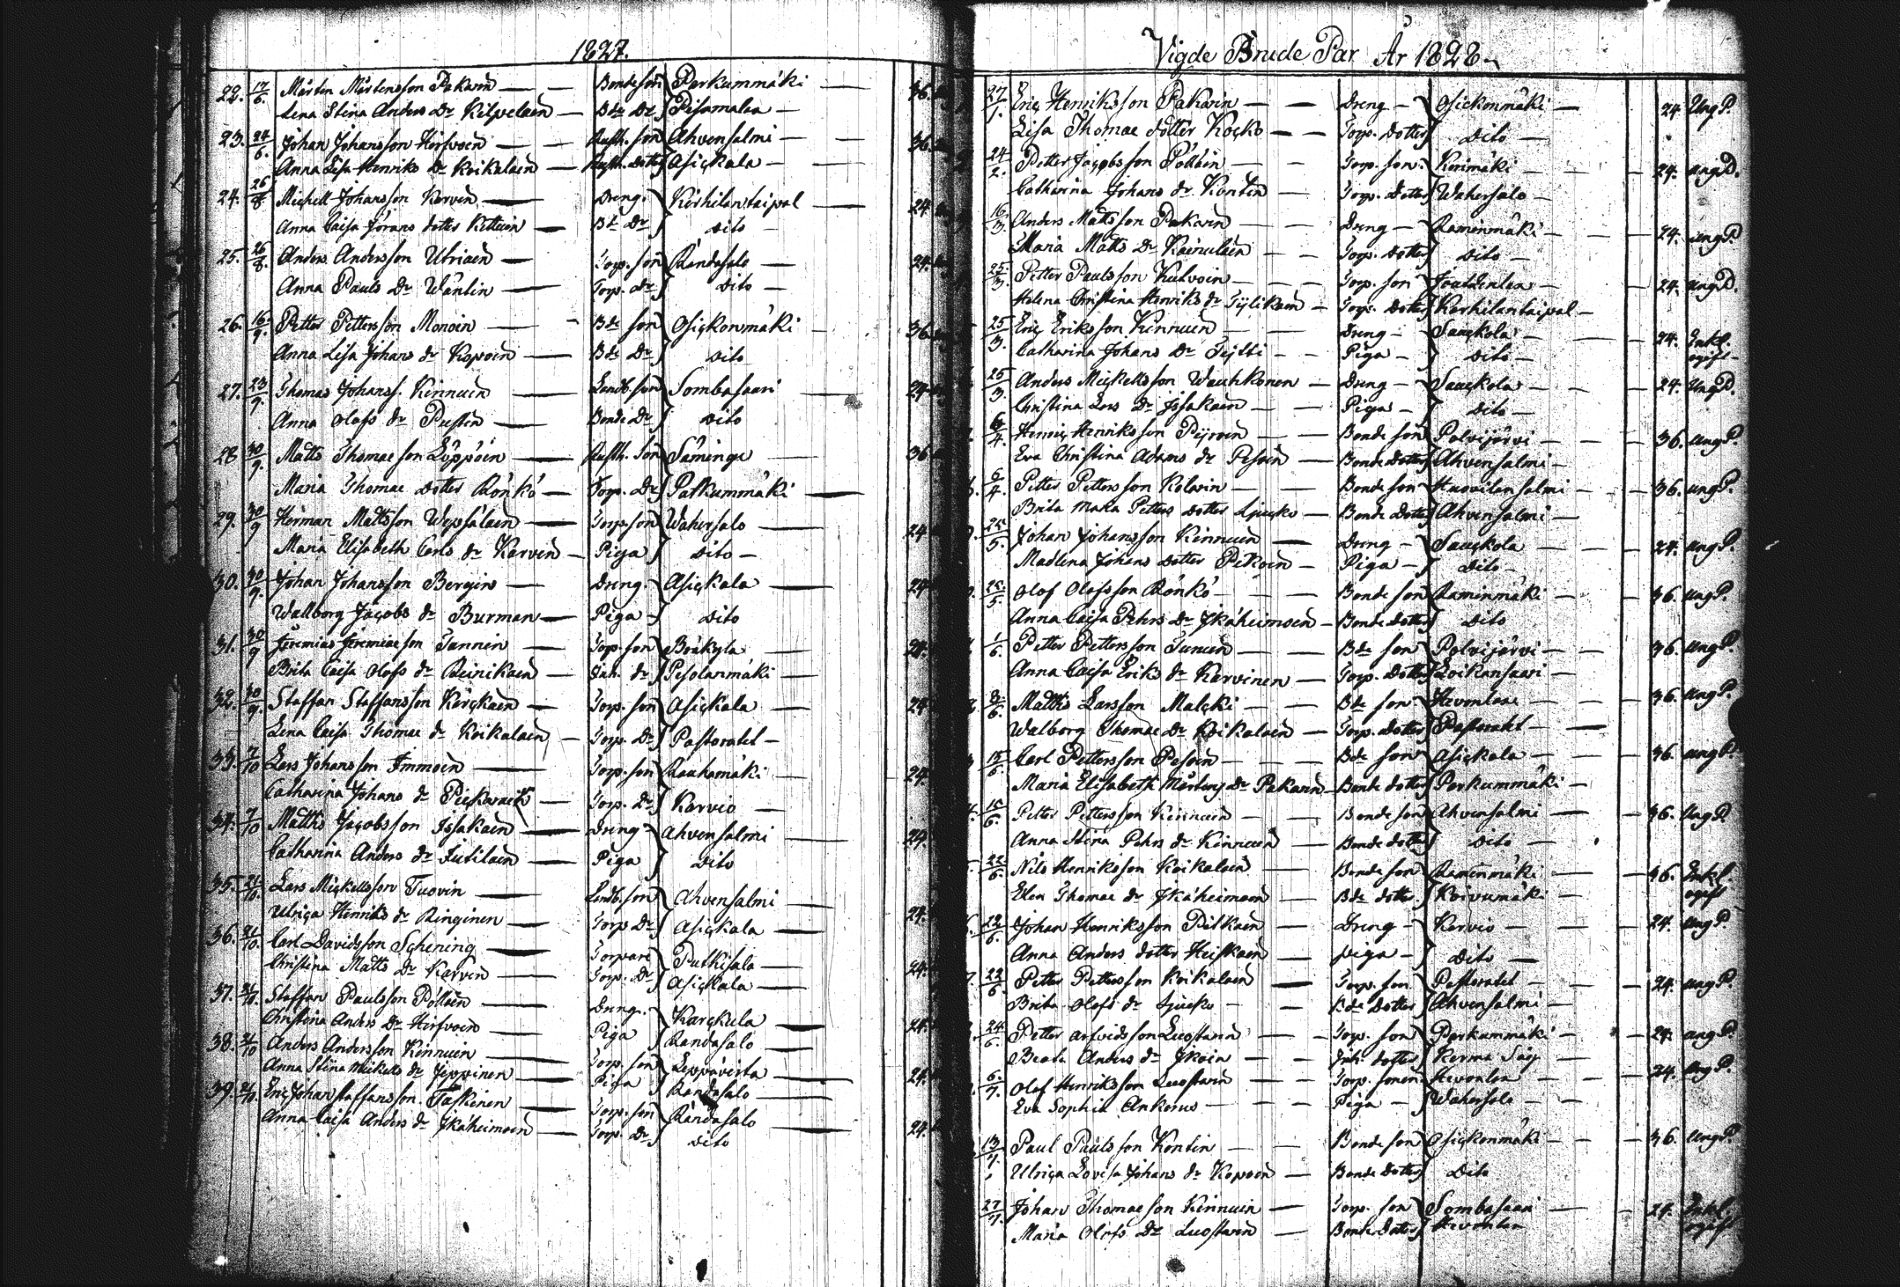 1827.
22. 17/6. Mårten Mårtensson Pakarin Bondeson Perkummäki 36.
Lena Stina Anders Dr Kilpelain Bde Dr Pisamalax
23. 24/6. Johan Johansson Hirfvoin Rusth. son Ahvensalmi 36.
Anna Lisa Henriks Dr Koikalain Rusth. dotter Asickala
24. 26/8 Michell Johansson Karvin Dreng. Kärhilantaipal 24.
Anna Caisa Jörans dotter Kettuin Bd Dr dito
25. 26/8. Anders Andersson Utriain Torp. son Randasalo 24.
Anna Pauls Dr Wäntin Torp. Dr Dito
26. 16/9. Petter Pettersson Monoin Bde son Osickonmäki 36.
Anna Lisa Johans dr Kopoin Bde Dr dito
27. 23/9. Thomas Johanss. Kinnuin Landb. son Sombasaari 24.
Anna Olofs dr Pustin Bonde Dr dito
28 30/9. Matts Thomae son Löppöin Rusth. Son Säminge 36
Maria Thomae dotter Rönkö Torp. Dr Patkummäki
29. 30/9 Herman Mattsson Wepsäläin Torp son Wahersalo 24
Maria Elisabeth Carls dr Karvin Piga Dito
30. 30/9. Johan Johansson Bergin Dreng. Asickala 24
Wallborg Jacobs dr Burman Piga dito
31. 30/9 Jeremias Jeremiaeson Tannin Torp. son Bräkyla 24.
Brita Caisa Olofs dr Reinikain dr Pesolanmäki
32. 30/9. Staffan Staffansson Kärckäin Torp. son Asickala 24
Lena Caisa Thomae dr Koikalain Torp. Dr Pastoratet
33. 7/10 Lars Johansson Immoin Torp. son Rauhamäki 24.
Catharina Johans dr Pickarain Torp. Dr Kervio
34. 7/10 Matths Jacobsson Issakain Dreng Ahvensalmi 24.
Catharina Anders dr Jutilain Piga Dito
35. 21/10. Lars Mickellsson Tuovin Landb. son Ahvensalmi 24.
Ulrica Henriks dr Ringinen Torp Dr Asickala
36. 21/10. Carl Davidsson Schening Torpare Putkisalo 24.
Christina Matts Dr Karvin Torp. Dr Asickala
37. 21/10. Staffan Paulsson Pöllöin Dreng. Karckela 24.
Christina Anders Dr Hirfvoin Piga Randasalo
38. 21/10 Anders Andersson Kinnuin Torp. son Leppävirta 24.
Anna Stina Mickels dr Jeppinen Piga Randasalo
39. 21/10. Eric Johan Staffansson Taskinen Torp. son Randasalo 24.
Anna Caisa Anders dr Ikäheimoin Torp. Dr dito
Vigde Brude Par År 1828.
27/1. Eric Henriksson Pakarin Dreng Osickonmäki 24. Ung P.
Lisa Thomae dotter Kocko Torp. dotter dito
24/2. Petter Jacobsson Pöllöin Torp. son. Koimäki 24. ung P.
Catharina Johans dr Kontin Torp. dotter Wahersalo
16/3 Anders Mattsson Pakarin Dreng Raminmäki 24. ung P.
Maria Matts Dr Kainulain Torp. dotter dito
25/3 Petter Paulsson Kulvoin Torp. son Joutsenlax 24. ung P.
Helena Christina Henriks dr Tylikain Torp. dotter Kärhilantaipal
25/3. Eric Eriksson Kinnuin Dreng Sauckola 24. Enkl. ogift
Catharina Johans Dr Teitti Piga dito
25/3 Anders Mickellsson Wauhkonen Dreng Sauckola 24. Ung P.
Christina Lars Dr Issakain Piga dito
6/4. Henric Henriksson Pyvoin Bonde son Polvijärvi 36. ung P.
Eva Christina Adams dr Pesoin Bonde dotter Ahvensalmi
6/4. Petter Pettersson Kolarin Bonde son Huovilansalmi 36. ung P.
Brita Maria Petters dotter Ljucko Bonde dotter Ahvensalmi
25/5. Johan Johansson Kinnuin Dreng Sauckola 24. ung P.
Madlena Johans dotter Pekoin Piga dito
25/5 Olof Olofsson Rönkö Bonde son Raminmäki 36. ung P.
Anna Caisa Pehrs Dr Ikäheimoen Bonde dotter dito
1/6 Petter Pettersson Turuin Bde son Polvijärvi 36. ung P.
Anna Caisa Eriks dr Karvinen Torp. dotter Loikansaari
8/6. Matths Larsson Malcki Bde son Hevonlax 36. ung P.
Walborg Thomae Dr Koikalain Torp. dotter Pastoratet
15/6 Carl Pettersson Pesoin Bde son Asickala 36. ung P.
Maria Elisabeth Mårtens Dr Pakarin Bonde dotter Perkummäki
15/6. Petter Pettersson Kinnuin Bonde son Ahvensalmi 36. Ung P.
Anna Stina Pehrs dr Kinnuin Bonde dotter dito
22/6 Nils Henriksson Koikalain Bonde son Raminmäki 36. Enkl. ogift
Elin Thomae dr Ikäheimoin Bde dotter Koivumäki
22/6. Johan Henriksson Pitkäin Dreng Kervio 24. ung P.
Anna Anders dotter Huiskoin piga dito
22/6 Petter Pettersson Koikalain Torp. son Pastoratet 24. ung P.
Brita Olofs dr Ljucko Bde dotter Ahvensalmi
24/6. Petter Arfvidsson Luostarin Torp. son Perkummäki 24. ung P.
Beata Anders dr Ikoin dotter Kerma Såg
6/7. Olof Henriksson Luostarin Torp. sonen Hevonlax 24. ung P.
Eva Sophia Ankerus Piga Wahersalo
13/7. Paul Paulsson Kontin Bonde son Osickonmäki 36. ung P.
Ulrica Lovisa Johans dr Kopoin Bonde dotter Dito
27/7. Johan Thomaeson Kinnuin Torp. son Sombasaari 24. Enkl. ogift
Maria Olofs Dr Luostarin Bonde dotter Hevonlax